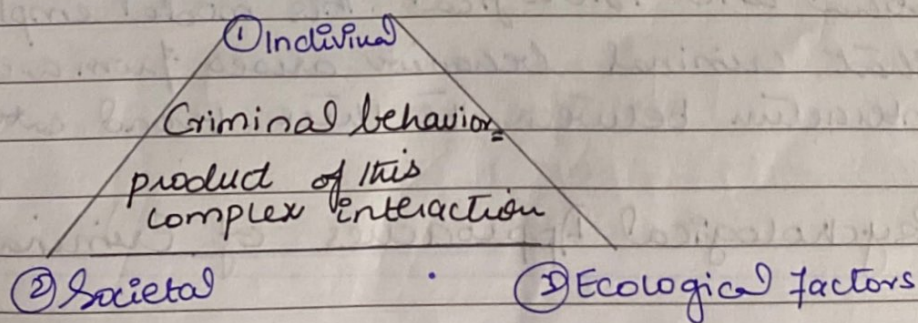 ① Indiviual
Criminal behavior =
product of this
complex interaction
② Societal
③ Ecological factors